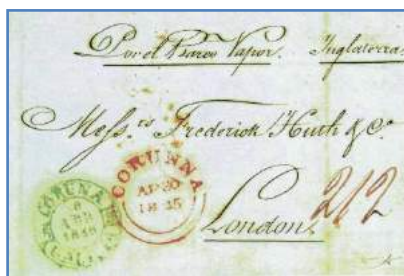 Por el Barco Vapor. Inglaterra
Mess.rs Frederick Huth & Co.
CORUNNA
AP 30
1845
CORUÑA
8
ABR
London.
2/2